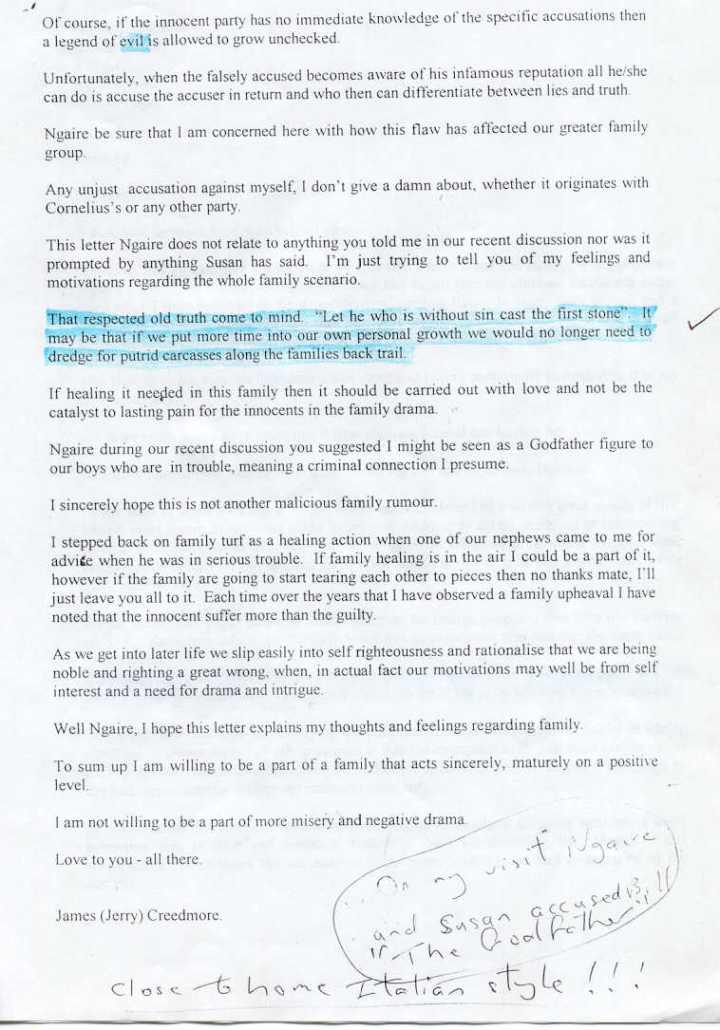 Of course, if the innocent party has no immediate knowledge of the specific accusations then
a legend of evil is allowed to grow unchecked.
Unfortunately, when the falsely accused becomes aware of his infamous reputation all he/she
can do is accuse the accuser in return and who then can differentiate between lies and truth.
Ngaire be sure that I am concerned here with how this flaw has affected our greater family
group.
Any unjust accusation against myself, I don't give a damn about, whether it originates with
Cornelius's or any other party.
This letter Ngaire does not relate to anything you told me in our recent discussion nor was it
prompted by anything Susan has said. I'm just trying to tell you of my feelings and
motivations regarding the whole family scenario.
That respected old truth come to mind. "Let he who is without sin cast the first stone". It
may be that if we put more time into our own personal growth we would no longer need to
dredge for putrid carcasses along the families back trail.
If healing it needed in this family then it should be carried out with love and not be the
catalyst to lasting pain for the innocents in the family drama.
Ngaire during our recent discussion you suggested I might be seen as a Godfather figure to
our boys who are in trouble, meaning a criminal connection I presume.
I sincerely hope this is not another malicious family rumour.
I stepped back on family turf as a healing action when one of our nephews came to me for
advice when he was in serious trouble. If family healing is in the air I could be a part of it,
however if the family are going to start tearing each other to pieces then no thanks mate, I'll
just leave you all to it. Each time over the years that I have observed a family upheaval I have
noted that the innocent suffer more than the guilty.
As we get into later life we slip easily into self righteousness and rationalise that we are being
noble and righting a great wrong, when, in actual fact our motivations may well be from self
interest and a need for drama and intrigue.
Well Ngaire, I hope this letter explains my thoughts and feelings regarding family.
To sum up I am willing to be a part of a family that acts sincerely, maturely on a positive
level.
I am not willing to be a part of more misery and negative drama.
Love to you - all there.
James (Jerry) Creedmore.
On my visit
and Susan accused
The Godfather
Close to home Italian style !!!